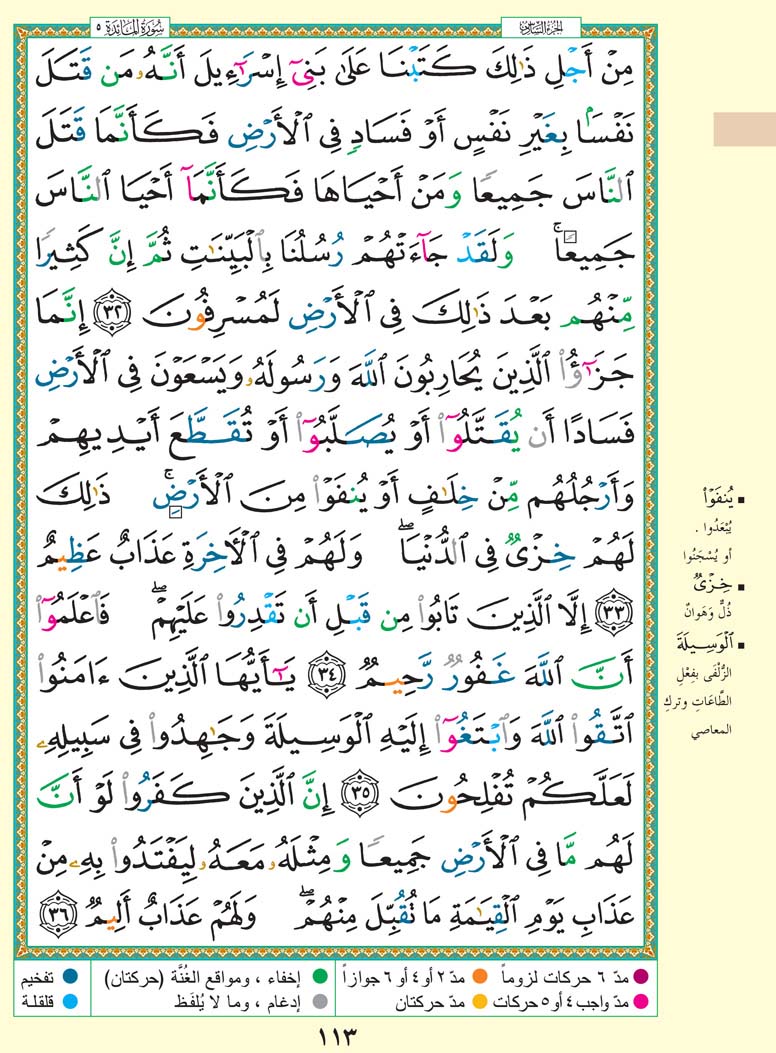 سُورَةُ المَائِدَةِ ٥
الجُزْءُ السَّادِسُ
مِنْ أَجْلِ ذَٰلِكَ كَتَبْنَا عَلَىٰ بَنِىٓ إِسْرَٰٓءِيلَ أَنَّهُۥ مَن قَتَلَ
نَفْسًۢا بِغَيْرِ نَفْسٍ أَوْ فَسَادٍ فِى ٱلْأَرْضِ فَكَأَنَّمَا قَتَلَ
ٱلنَّاسَ جَمِيعًا وَمَنْ أَحْيَاهَا فَكَأَنَّمَآ أَحْيَا ٱلنَّاسَ
جَمِيعًا ۚ وَلَقَدْ جَآءَتْهُمْ رُسُلُنَا بِٱلْبَيِّنَٰتِ ثُمَّ إِنَّ كَثِيرًا
مِّنْهُم بَعْدَ ذَٰلِكَ فِى ٱلْأَرْضِ لَمُسْرِفُونَ ٣٢ إِنَّمَا
جَزَٰٓؤُا۟ ٱلَّذِينَ يُحَارِبُونَ ٱللَّهَ وَرَسُولَهُۥ وَيَسْعَوْنَ فِى ٱلْأَرْضِ
فَسَادًا أَن يُقَتَّلُوٓا۟ أَوْ يُصَلَّبُوٓا۟ أَوْ تُقَطَّعَ أَيْدِيهِمْ
وَأَرْجُلُهُم مِّنْ خِلَٰفٍ أَوْ يُنفَوْا۟ مِنَ ٱلْأَرْضِ ۚ ذَٰلِكَ
لَهُمْ خِزْىٌ فِى ٱلدُّنْيَا ۖ وَلَهُمْ فِى ٱلْءَاخِرَةِ عَذَابٌ عَظِيمٌ
٣٣ إِلَّا ٱلَّذِينَ تَابُوا۟ مِن قَبْلِ أَن تَقْدِرُوا۟ عَلَيْهِمْ ۖ فَٱعْلَمُوٓا۟
أَنَّ ٱللَّهَ غَفُورٌ رَّحِيمٌ ٣٤ يَٰٓأَيُّهَا ٱلَّذِينَ ءَامَنُوا۟
ٱتَّقُوا۟ ٱللَّهَ وَٱبْتَغُوٓا۟ إِلَيْهِ ٱلْوَسِيلَةَ وَجَٰهِدُوا۟ فِى سَبِيلِهِۦ
لَعَلَّكُمْ تُفْلِحُونَ ٣٥ إِنَّ ٱلَّذِينَ كَفَرُوا۟ لَوْ أَنَّ
لَهُم مَّا فِى ٱلْأَرْضِ جَمِيعًا وَمِثْلَهُۥ مَعَهُۥ لِيَفْتَدُوا۟ بِهِۦ مِنْ
عَذَابِ يَوْمِ ٱلْقِيَٰمَةِ مَا تُقُبِّلَ مِنْهُمْ ۖ وَلَهُمْ عَذَابٌ أَلِيمٌ ٣٦
▪ يُنفَوْا۟
يُبْعَدُوا .
أو يُسْجَنُوا
▪ خِزْىٌ
ذُلٌّ وَهَوانٌ
▪ ٱلْوَسِيلَةَ
الزُّلْفَى بِفِعْلِ
الطَّاعَاتِ وتركِ
المعاصي
مدّ ٦ حركات لزوماً
مدّ ٢ أو ٤ أو ٦ جوازاً
إخفاء ، ومواقع الغُنَّة (حركتان)
تفخيم
مدّ واجب ٤ أو ٥ حركات
مدّ حركتان
إدغام ، وما لا يُلفَظ
قلقلة
١١٣